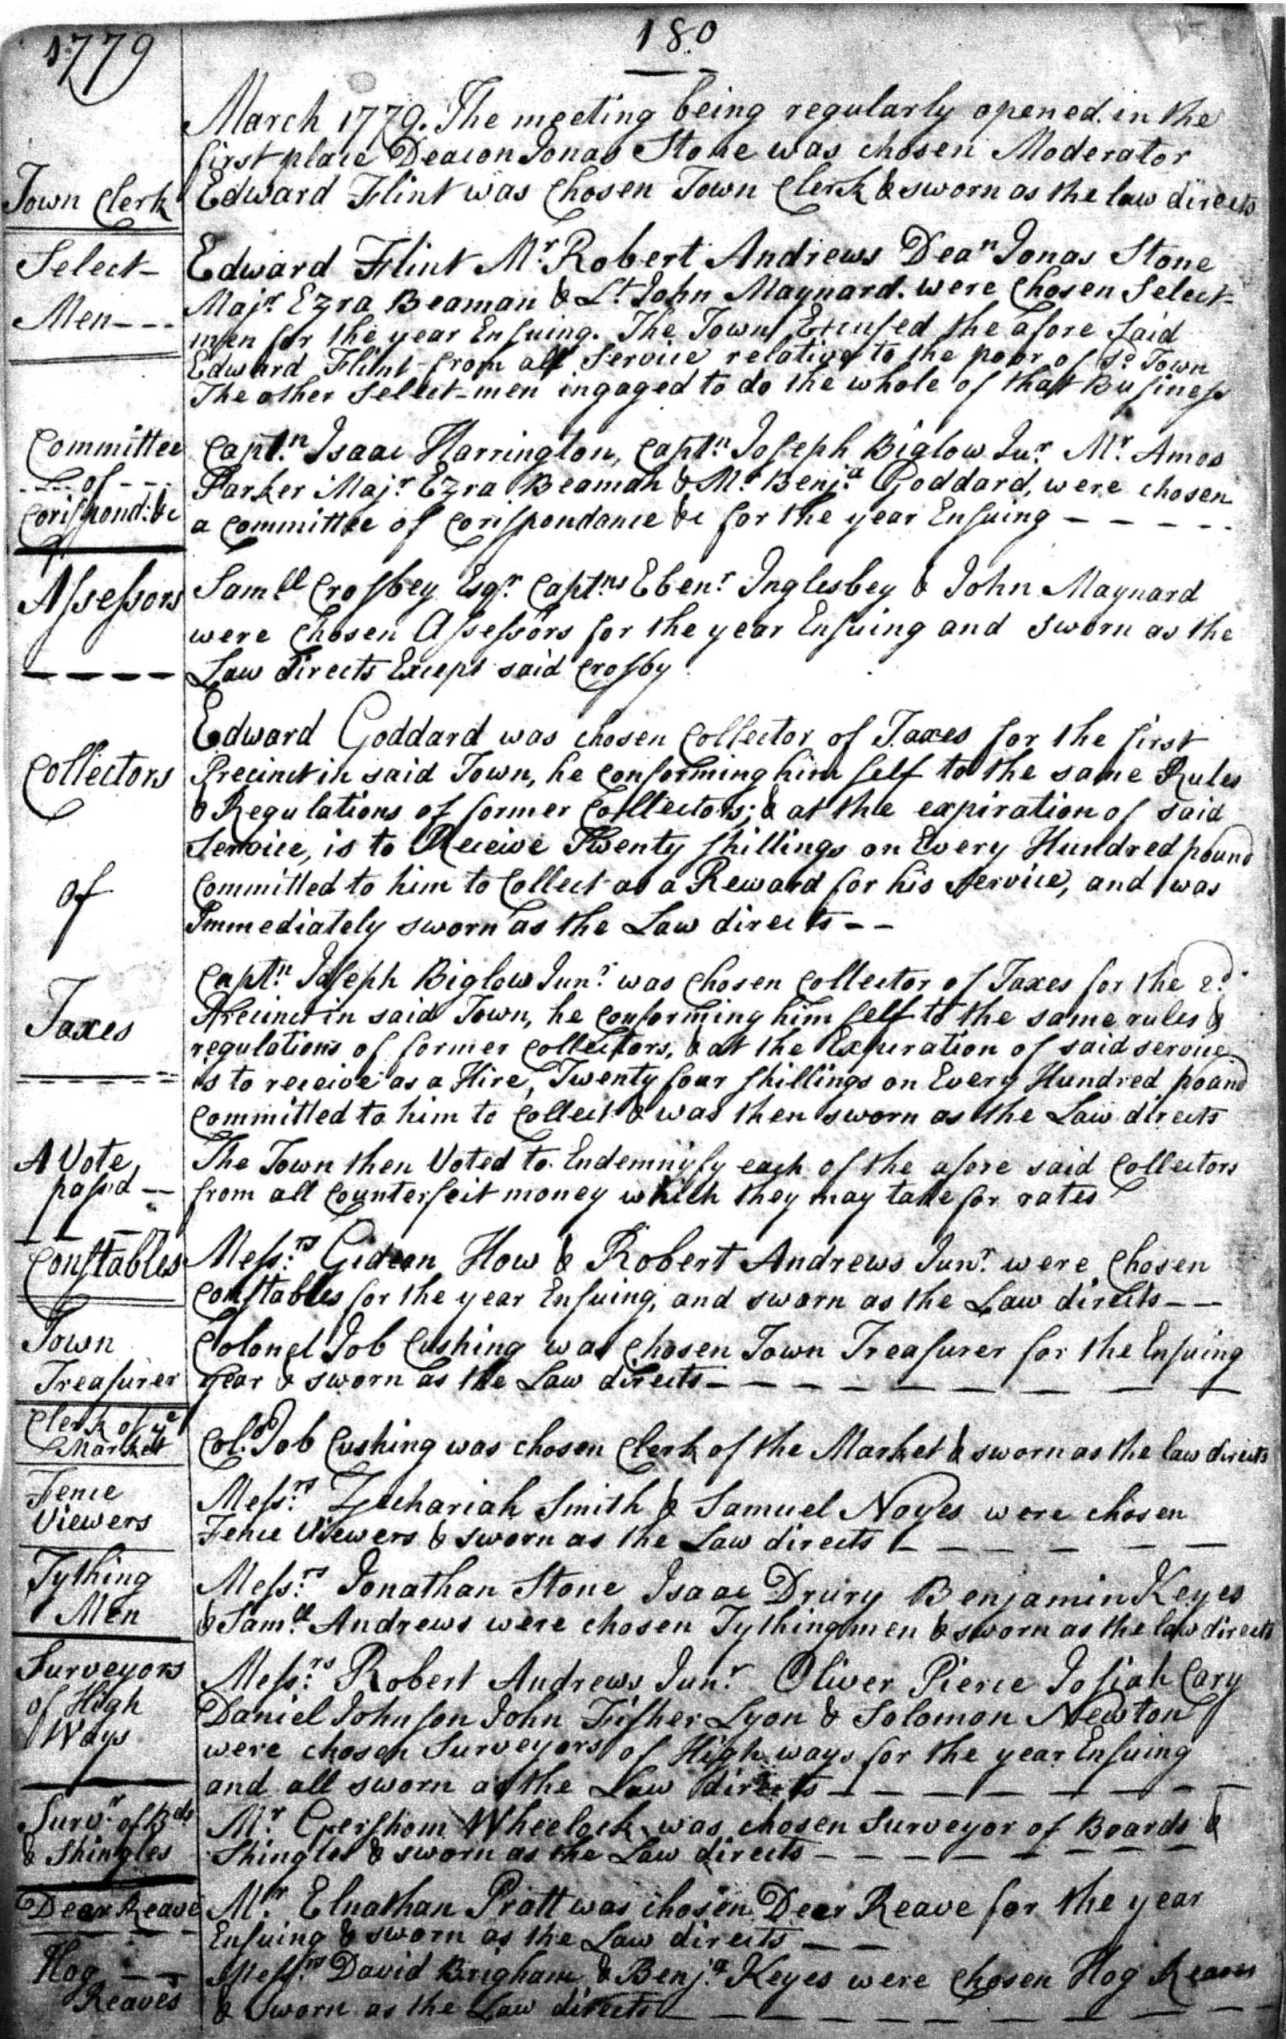 1779
180
March 1779. The meeting being regularly opened in the
first place Deacon Jonas Stone was chosen Moderator
Town Clerk
Edward Flint was Chosen Town Clerk & sworn as the law directs
Select-
Men---
Edward Flint Mr. Robert Andrews Dean Jonas Stone
Majr. Ezra Beaman & Lt. John Maynard. were Chosen Select-
men for the year Ensuing. The Town Excused the afore said
Edward Flint from all Service relative to the poor of sd. Town
The other Select-men engaged to do the whole of that Business
Committee
--of--
Corispond: &c
Captn. Isaac Harrington, Captn. Joseph Biglow Jur. Mr. Amos
Parker Majr. Ezra Beaman & Mr. Benja. Goddard, were chosen
a Committee of Corispondance &c for the year Ensuing -----
Assessors
Samll. Crosbey Esqr. Captns Ebenr. Inglesbey & John Maynard
were Chosen Assessors for the year Ensuing and sworn as the
Law directs Except said Crosby
Collectors
of
Taxes
Edward Goddard was chosen Collector of Taxes for the first
Precinct in said Town, he conforming him self to the same Rules
& Regulations of former Collectors; & at the expiration of said
Service, is to Receive Twenty shillings on Every Hundred pound
Committed to him to Collect as a Reward for his service, and was
Immediately sworn as the Law directs--
Captn. Joseph Biglow Junr. was Chosen Collector of Taxes for the 2d.
Precinct in said Town, he conforming him self to the same rules &
regulations of former Collectors, & at the Expiration of said service
is to receive as a Hire, Twenty four shillings on Every Hundred pound
Committed to him to Collect & was then sworn as the Law directs
A Vote
passd --
The Town then Voted to Endemnyfy each of the afore said Collectors
from all Counterfeit money which they may take for rates
Constables
Messrs. Gideon How & Robert Andrews Junr. were Chosen
Constables for the year Ensuing, and sworn as the Law directs---
Town
Treasurer
Colonel Job Cushing was Chosen Town Treasurer for the Ensuing
year & sworn as the Law directs--------
Clerk of ye
Market
Col. Job Cushing was chosen Clerk of the Market & sworn as the law directs
Fence
Viewers
Messrs. Zachariah Smith & Samuel Noyes were chosen
Fence Viewers & sworn as the Law directs ------
Tything
Men
Messrs. Jonathan Stone Isaac Drury Benjamin Keyes
& Samll. Andrews were chosen Tythingmen & sworn as the law directs
Surveyors
of High
Ways
Messrs. Robert Andrews Junr. Oliver Pierce Josiah Cary
Daniel Johnson John Fisher Lyon & Solomon Newton
were chosen Surveyors of High ways for the year Ensuing
and all sworn as the Law directs--------
Survr. of Bds
& Shingles
Mr. Gershom Wheelock was chosen Surveyor of Boards &
Shingles & sworn as the Law directs-------
Dear Reave
Mr. Elnathan Pratt was chosen Deer Reave for the year
Ensuing & sworn as the Law directs---
Hog --
Reaves
Messrs David Brigham & Benja. Keyes were chosen Hog Reaves
& Sworn as the Law directs----------